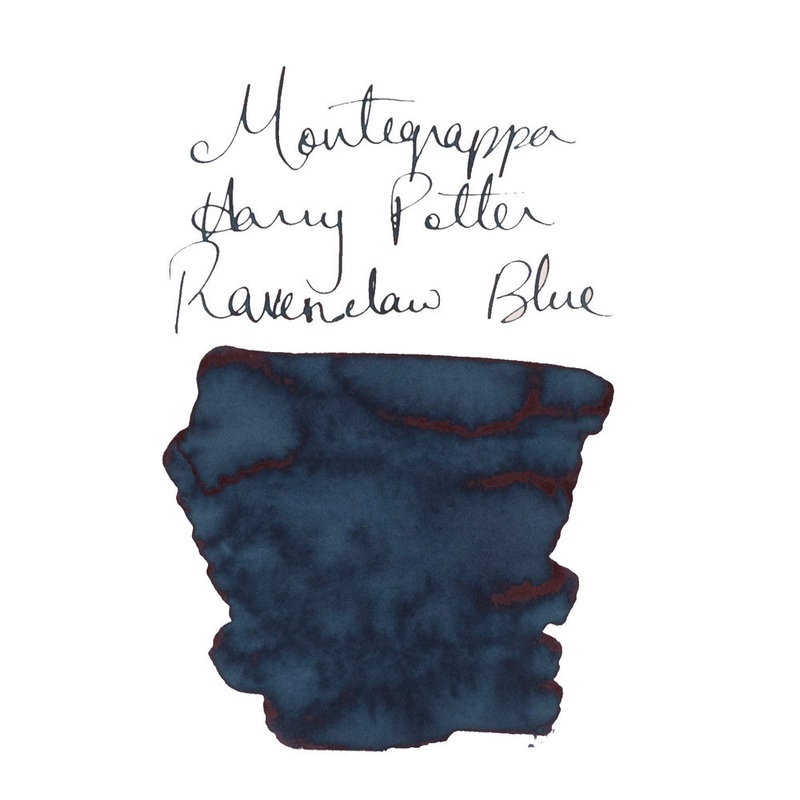 Montegrappa
Harry Potter
Ravenclaw Blue